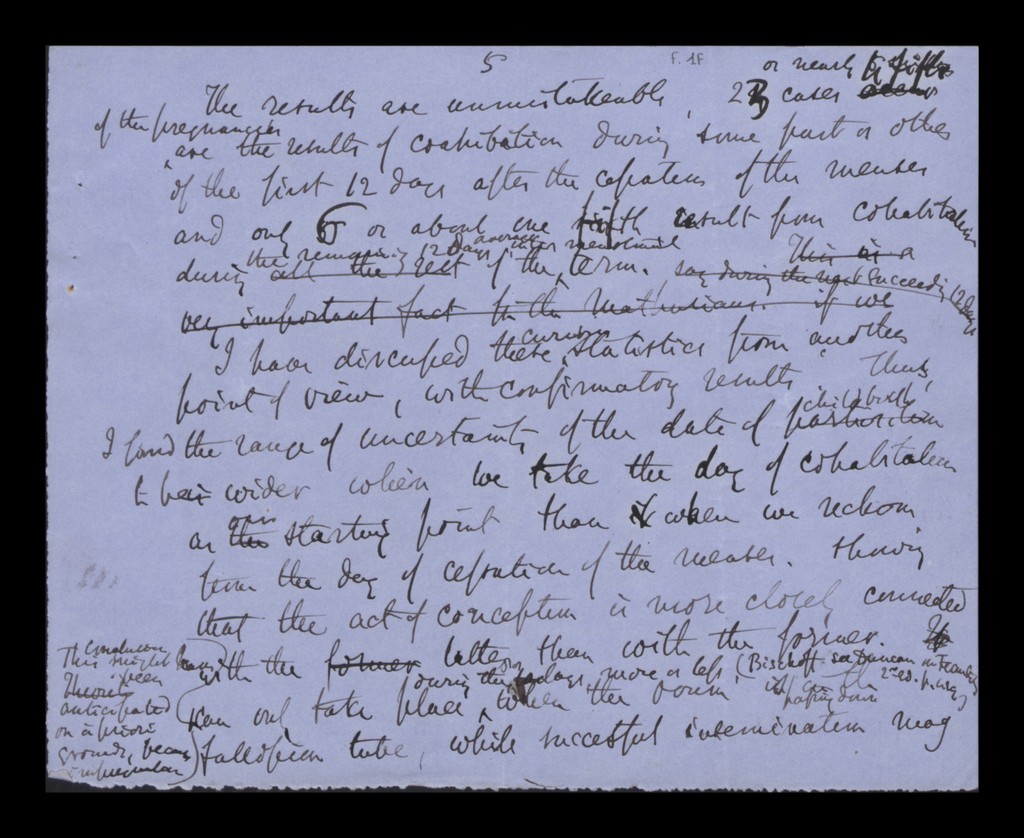 5
F. 1F
or nearly
The results are unmistakeable, 23 cases
of the pregnancies
are the results of cohabitation during some part or other
of the first 12 days after the cessation of the menses
and only 6 or about one fifth result from cohabitation
the remaining 12 days average inter menstrual
during all the rest of the term. This is a
say during the next succeeding 12 days
very important fact for the Malthusians. if we
curious
I have discussed these statistics from another
point of view, with confirmatory results. Thus,
childbirth
I found the range of uncertainty of the date of parturition
to be wider when we take the day of cohabitation
our
as the starting point than if when we reckon
from the day of cessation of the menses. Showing
that the act of conception is more closely connected
with the former latter than with the former.
during the days, more or less, (Bischoff see Duncan on Fecundity
2nd ed. p.
can only take place, when the ovum is passing down
fallopian tube, while successful insemination may
conclusion
This might have
been
Theory
anticipated
on à priori
grounds, because
impregnation